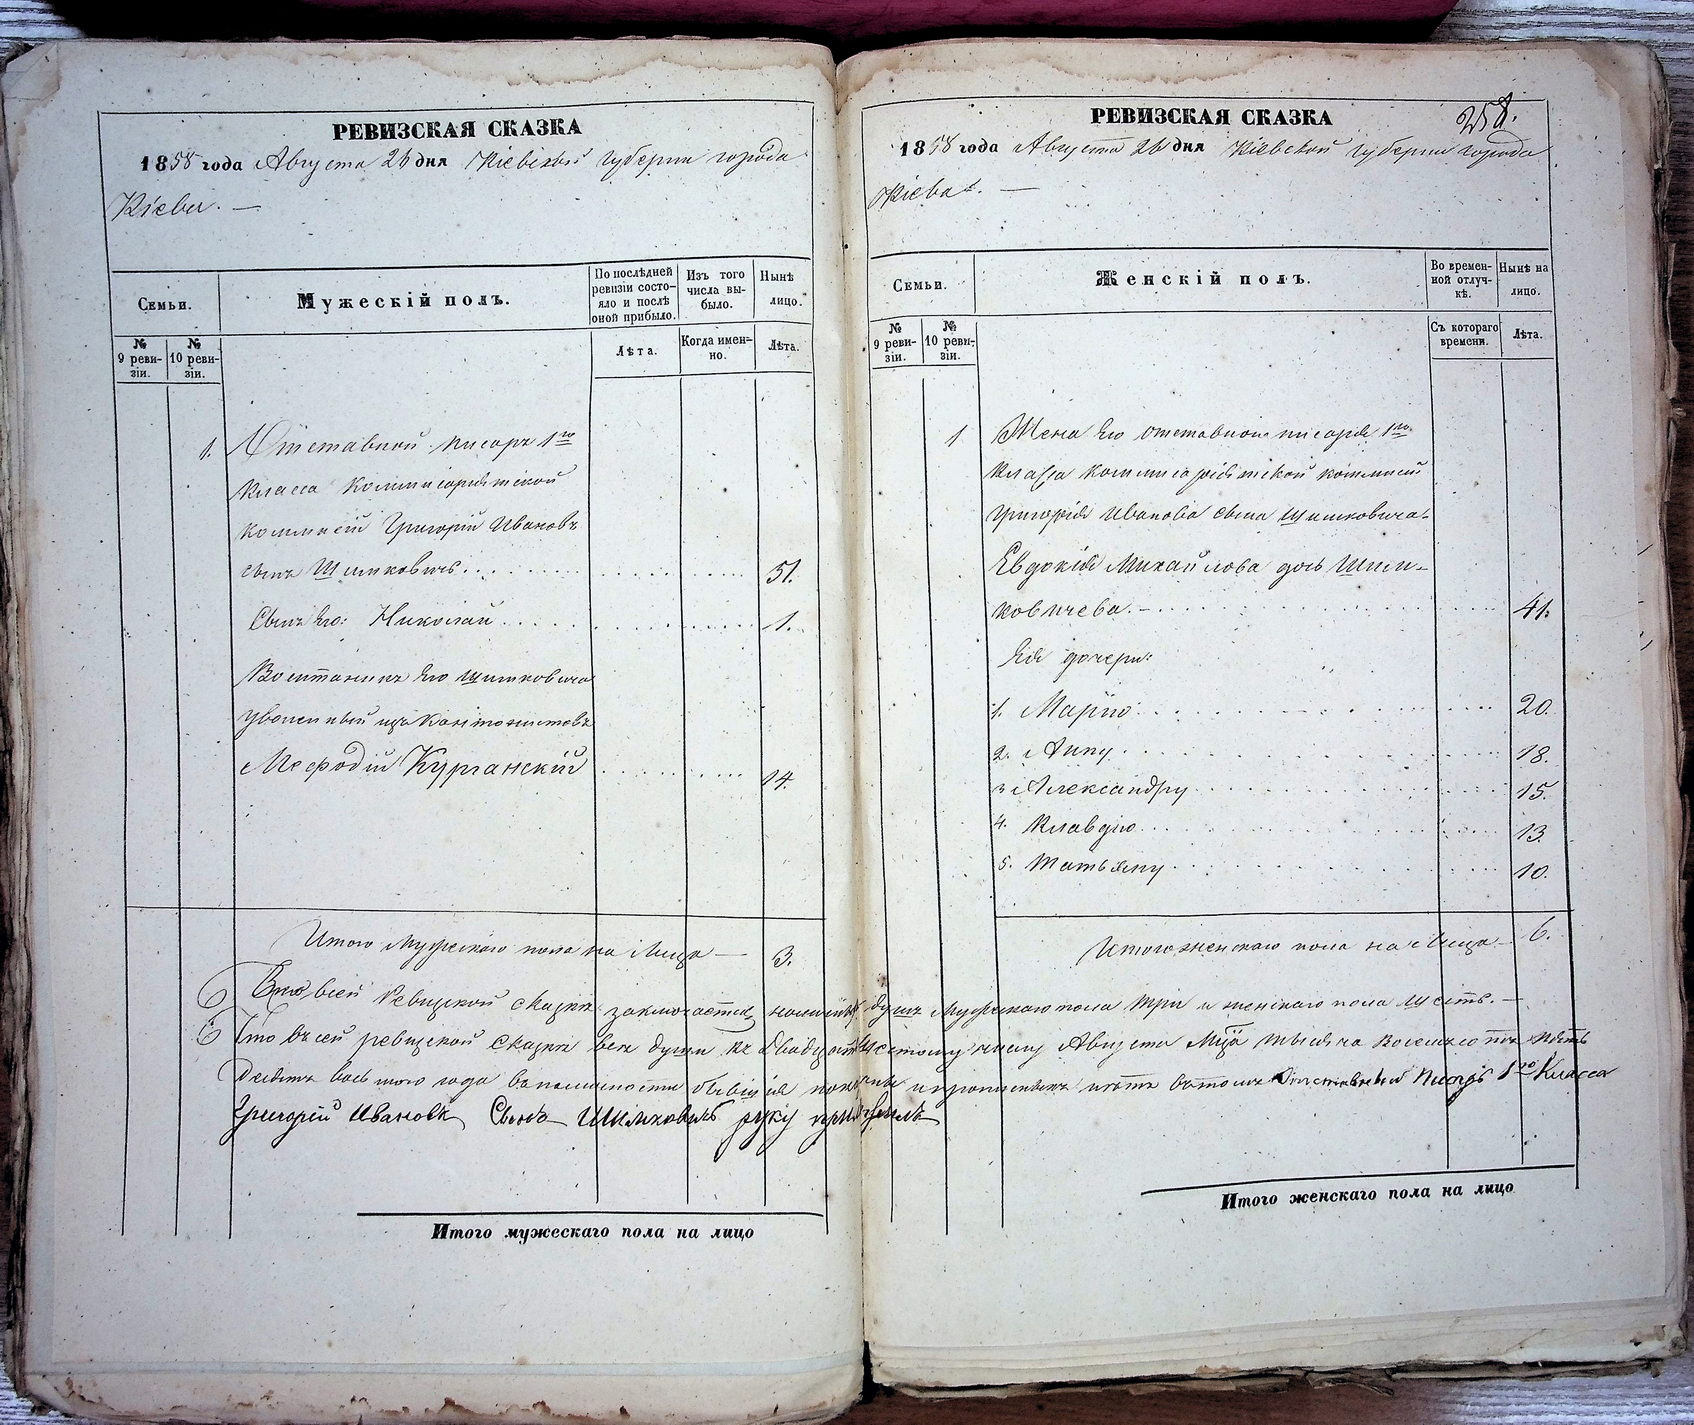 РЕВИЗСКАЯ СКАЗКА
1858 года Августа 26 дня Кіевской губерніи города
Кіева. —
Семьи.
Мужескій полъ.
По послѣдней ревизіи состояло и послѣ оной прибыло.
Изъ того числа выбыло.
Нынѣ лицо.
№ 9 ревизіи.
№ 10 ревизіи.
Лѣта.
Когда именно.
Лѣта.
1. Отставной писарь 1го
класса Коммисаріятской
коммисіи Григорій Ивановъ
сынъ Шимковичъ. 51.
Сынъ Его: Николай 1.
Воспитаникъ Его Шимковича
уволенный изъ Кантонистовъ
Мефодій Курганскій 14.
Итого Мужескаго пола на Лицо — 3.
258.
РЕВИЗСКАЯ СКАЗКА
1858 года Августа 26 дня Кіевской губерніи города
Кіева. —
Семьи.
Женскій полъ.
Во временной отлучкѣ.
Нынѣ на лицо.
№ 9 ревизіи.
№ 10 ревизіи.
Съ котораго времени.
Лѣта.
1 Жена Его отставного писаря 1го
класса коммисаріятской коммисіи
Григорія Иванова сына Шимковича
Евдокія Михайлова дочь Шим-
ковичева. — 41.
Ея дочери:
1. Марію 20.
2. Анну 18.
3 Александру 15.
4. Клавдію 13.
5. Татьяну 10.
Итого женскаго пола на Лицо — 6.
Въ сей Ревизской сказки заключается наличныхъ душъ Мужескаго пола три и женскаго пола шесть. —
Что въ сей ревизской Сказки всѣ души къ двадцать шестому числу Августа Мца тысяча восемьсотъ пять
десятъ восьмого года въ наличности бывшія показаны и прописныхъ нѣтъ въ томъ Отставной Писарь 1го Класса
Григорій Ивановъ Сынъ Шимковичъ руку приложилъ
Итого мужескаго пола на лицо
Итого женскаго пола на лицо